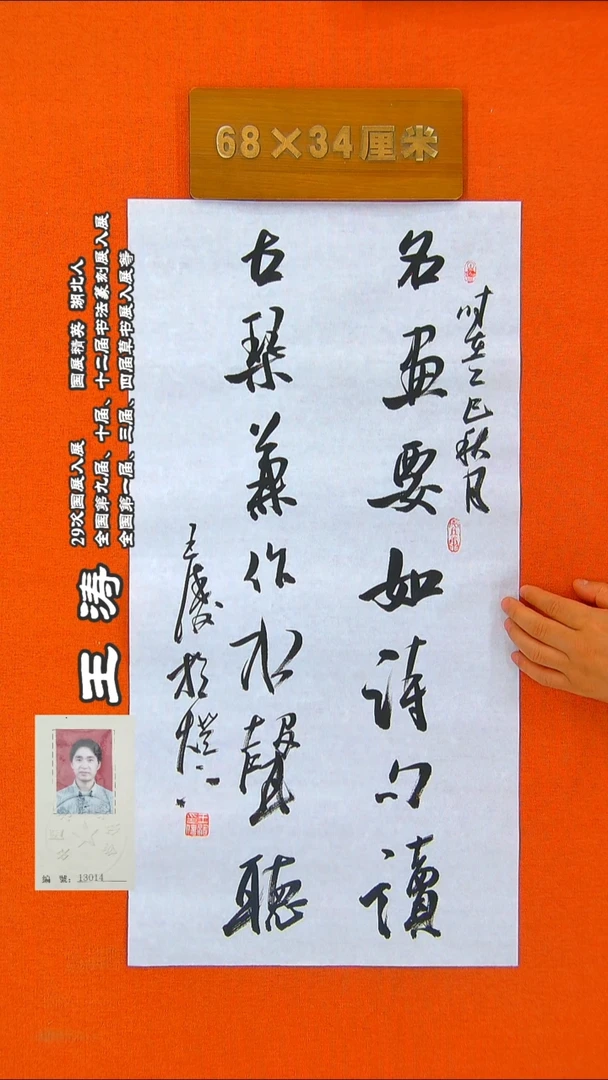 68×34厘米
名画要如詩句讀
古琴兼作水聲聽
时在乙巳秋月
王涛
29次国展入展 国展精英 湖北人
全国第九届、十届、十二届书法篆刻展入展
全国第一届、三届、四届草书展入展等
編 號：13014